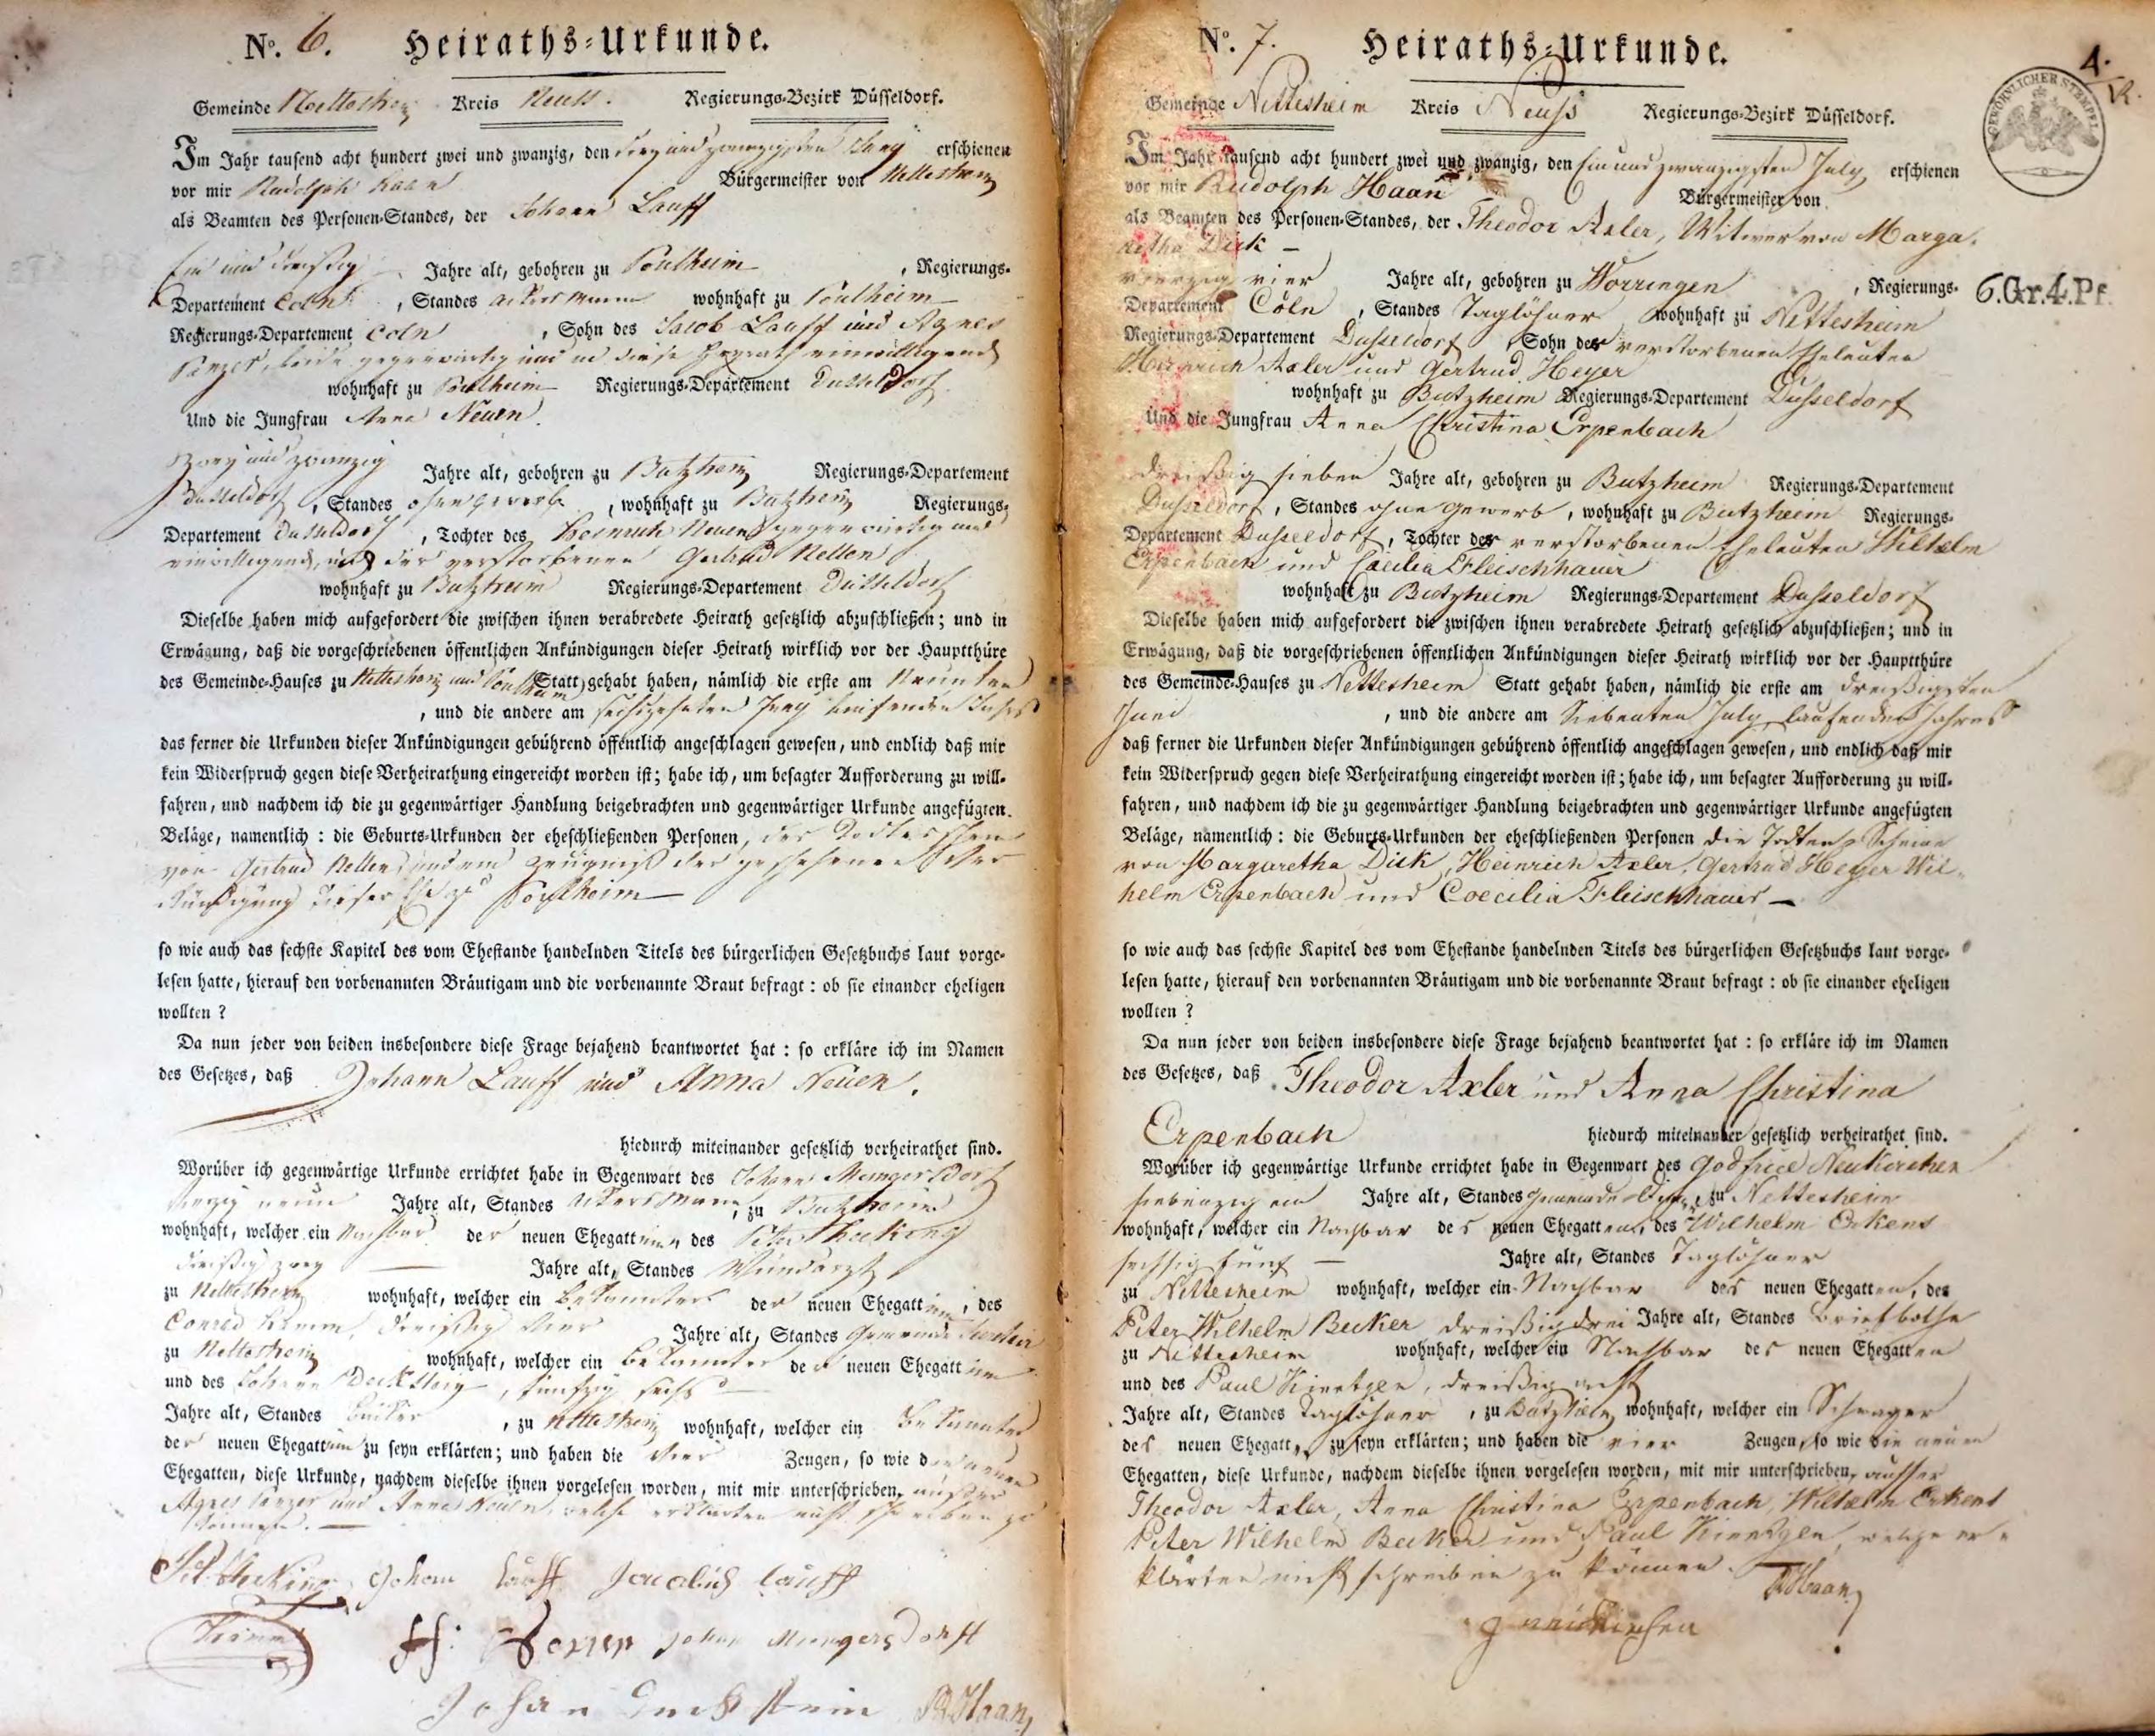 No. 6. Heiraths-Urkunde.
Gemeinde Nettesheim Kreis Neuss. Regierungs-Bezirk Düsseldorf.
Im Jahr tausend acht hundert zwei und zwanzig, den drey und zwanzigsten Juny erschienen
vor mir Rudolph Haan Bürgermeister von Nettesheim
als Beamten des Personen-Standes, der Johann Lauff
Ein und dreißig Jahre alt, gebohren zu Poulheim, Regierungs-
Departement Coeln, Standes Ackersmann wohnhaft zu Poulheim
Regierungs-Departement Coeln, Sohn des Jacob Lauff und Agnes
beide gegenwärtig und in diese Heyrath einwilligend
wohnhaft zu Poulheim Regierungs-Departement Dusseldorf
Und die Jungfrau Anna Neuen.
zwey und zwanzig Jahre alt, gebohren zu Butzheim Regierungs-Departement
Dusseldorf, Standes ohne Gewerb, wohnhaft zu Butzheim Regierungs-
Departement Dusseldorf, Tochter des Heinrich Neuen gegenwärtig und
einwilligend, und der verstorbenen Gertrud Nellen
wohnhaft zu Butzheim Regierungs-Departement Düsseldorf
Dieselbe haben mich aufgefordert die zwischen ihnen verabredete Heirath gesetzlich abzuschließen; und in
Erwägung, daß die vorgeschriebenen öffentlichen Ankündigungen dieser Heirath wirklich vor der Hauptthüre
des Gemeinde-Hauses zu Nettesheim und Poulheim Statt gehabt haben, nämlich die erste am Neunten
, und die andere am sechszehnten Juny laufenden Jahres
das ferner die Urkunden dieser Ankündigungen gebührend öffentlich angeschlagen gewesen, und endlich daß mir
kein Widerspruch gegen diese Verheirathung eingereicht worden ist; habe ich, um besagter Aufforderung zu will-
fahren, und nachdem ich die zu gegenwärtiger Handlung beigebrachten und gegenwärtiger Urkunde angefügten.
Beläge, namentlich: die Geburts-Urkunden der eheschließenden Personen, der Todtesschein
von Gertrud Nellen, und ein Zeugniß der geschehenen Ver-
kündigung dieser Ehe zu Poulheim
so wie auch das sechste Kapitel des vom Ehestande handelnden Titels des bürgerlichen Gesetzbuchs laut vorge-
lesen hatte, hierauf den vorbenannten Bräutigam und die vorbenannte Braut befragt: ob sie einander eheligen
wollten?
Da nun jeder von beiden insbesondere diese Frage bejahend beantwortet hat: so erkläre ich im Namen
des Gesetzes, daß Johann Lauff und Anna Neuen.
hiedurch miteinander gesetzlich verheirathet sind.
Worüber ich gegenwärtige Urkunde errichtet habe in Gegenwart des Johann Mengersdorf
vierzig neun Jahre alt, Standes Ackersmann, zu Butzheim
wohnhaft, welcher ein Nachbar der neuen Ehegattinn, des Peter
dreißig zwey Jahre alt, Standes Wundarzt
zu Nettesheim wohnhaft, welcher ein Bekannter der neuen Ehegattinn, des
Conrad dreißig vier Jahre alt, Standes Gemeinde
zu Nettesheim wohnhaft, welcher ein Bekannter der neuen Ehegattinn
und des Johann Deckstein, fünfzig sechs
Jahre alt, Standes, zu Nettesheim wohnhaft, welcher ein Bekannter
der neuen Ehegattinn zu seyn erklärten; und haben die vier Zeugen, so wie die neuen
Ehegatten, diese Urkunde, nachdem dieselbe ihnen vorgelesen worden, mit mir unterschrieben, außer
Agnes und Anna Neuen, welche erklärten nicht schreiben zu
können.
Johann Lauff Lauff
Johan Mengersdorff
Johan Deckstein RHaan
No. 7. Heiraths-Urkunde.
4.
GEWÖHNLICHER STEMPEL
6.Gr.4.Pf.
Gemeinde Nettesheim Kreis Neuss Regierungs-Bezirk Düsseldorf.
Im Jahr tausend acht hundert zwei und zwanzig, den Ein und zwanzigsten July erschienen
vor mir Rudolph Haan Bürgermeister von
als Beamten des Personen-Standes, der Theodor Axler, Witwer von Marga-
retha Dick
vierzig vier Jahre alt, gebohren zu Worringen, Regierungs-
Departement Cöln, Standes Taglöhner wohnhaft zu Nettesheim
Regierungs-Departement Dusseldorf, Sohn der verstorbenen Eheleuten
Heinrich Axler und Gertrud Heyer
wohnhaft zu Butzheim Regierungs-Departement Dusseldorf
Und die Jungfrau Anna Christina Erpenbach
dreißig sieben Jahre alt, gebohren zu Butzheim Regierungs-Departement
Dusseldorf, Standes ohne Gewerb, wohnhaft zu Butzheim Regierungs-
Departement Dusseldorf, Tochter der verstorbenen Eheleuten Wilhelm
Erpenbach und Caecilia Fleischhauer
wohnhaft zu Butzheim Regierungs-Departement Dusseldorf
Dieselbe haben mich aufgefordert die zwischen ihnen verabredete Heirath gesetzlich abzuschließen; und in
Erwägung, daß die vorgeschriebenen öffentlichen Ankündigungen dieser Heirath wirklich vor der Hauptthüre
des Gemeinde-Hauses zu Nettesheim Statt gehabt haben, nämlich die erste am dreißigsten
Juni, und die andere am Siebenten July laufenden Jahres
daß ferner die Urkunden dieser Ankündigungen gebührend öffentlich angeschlagen gewesen, und endlich daß mir
kein Widerspruch gegen diese Verheirathung eingereicht worden ist; habe ich, um besagter Aufforderung zu will-
fahren, und nachdem ich die zu gegenwärtiger Handlung beigebrachten und gegenwärtiger Urkunde angefügten
Beläge, namentlich: die Geburts-Urkunden der eheschließenden Personen die Todten-Scheine
von Margaretha Dick, Heinrich Axler, Gertrud Heyer Wil-
helm Erpenbach und Coecilia Fleischhauer
so wie auch das sechste Kapitel des vom Ehestande handelnden Titels des bürgerlichen Gesetzbuchs laut vorge-
lesen hatte, hierauf den vorbenannten Bräutigam und die vorbenannte Braut befragt: ob sie einander eheligen
wollten?
Da nun jeder von beiden insbesondere diese Frage bejahend beantwortet hat: so erkläre ich im Namen
des Gesetzes, daß Theodor Axler und Anna Christina
Erpenbach hiedurch miteinander gesetzlich verheirathet sind.
Worüber ich gegenwärtige Urkunde errichtet habe in Gegenwart des Godfried Neukirchen
siebenzig ein Jahre alt, Standes Gemeinde, zu Nettesheim
wohnhaft, welcher ein Nachbar des neuen Ehegatten, des Wilhelm Erkens
sechsig fünf Jahre alt, Standes Taglöhner
zu Nettesheim wohnhaft, welcher ein Nachbar des neuen Ehegatten, des
Peter Wilhelm Becker dreißig drei Jahre alt, Standes Briefbothe
zu Nettesheim wohnhaft, welcher ein Nachbar des neuen Ehegatten
und des Paul Kirntgen, dreißig acht
Jahre alt, Standes Taglöhner, zu Butzheim wohnhaft, welcher ein Schwager
des neuen Ehegatten zu seyn erklärten; und haben die vier Zeugen, so wie die neuen
Ehegatten, diese Urkunde, nachdem dieselbe ihnen vorgelesen worden, mit mir unterschrieben, ausser
Theodor Axler, Anna Christina Erpenbach, Wilhelm Erkens
Peter Wilhelm Becker und Paul Kirntgen, welche er-
klärten nicht schreiben zu können.
RHaan
g neukirchen